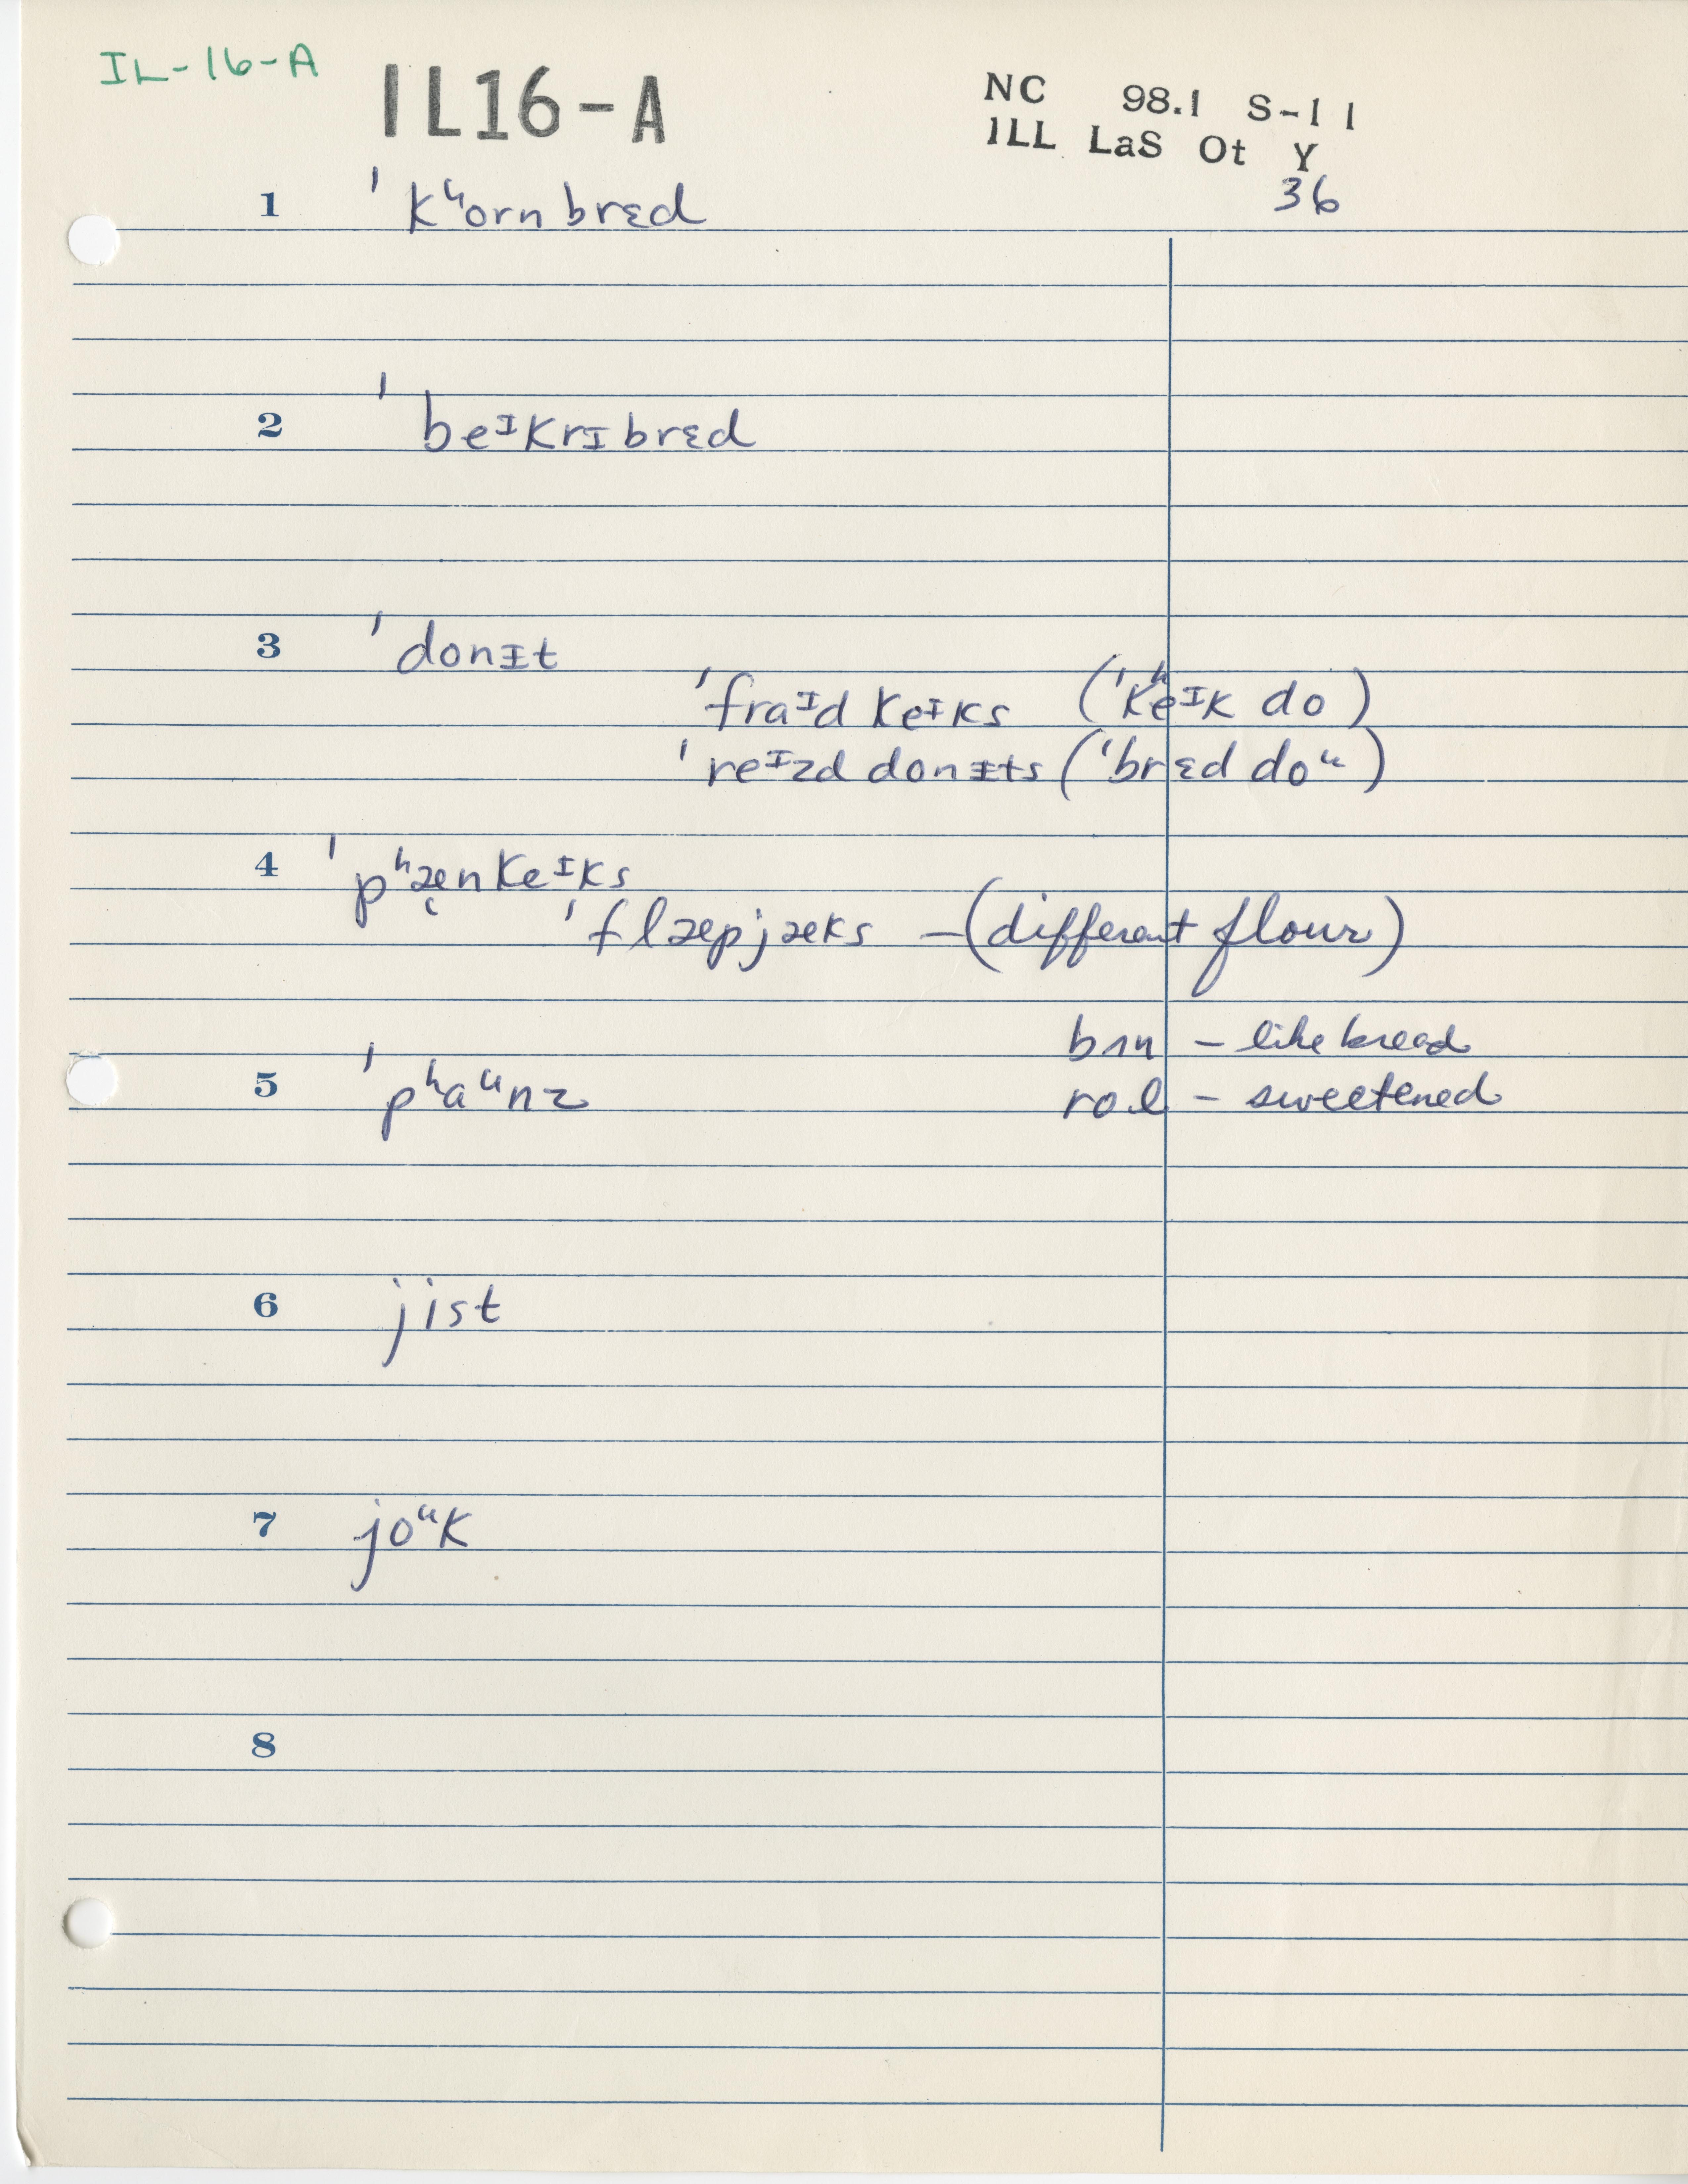 IL-16-A
IL16-A
NC 98.1 S-11
ILL LaS Ot Y
36
1 ˈkʰorn brɛd
2 ˈbeᶦkrɪ brɛd
3 ˈdonɪt
ˈfraᶦd keᶦks (ˈkʰeᶦk do)
ˈreᶦzd donɪts (ˈbrɛd doᵘ)
4 ˈpʰæ̨nkeᶦks
ˈflæpjæks – (different flour)
bʌn – like bread
5 ˈpʰaᵘnz
rol – sweetened
6 jist
7 joᵘk
8